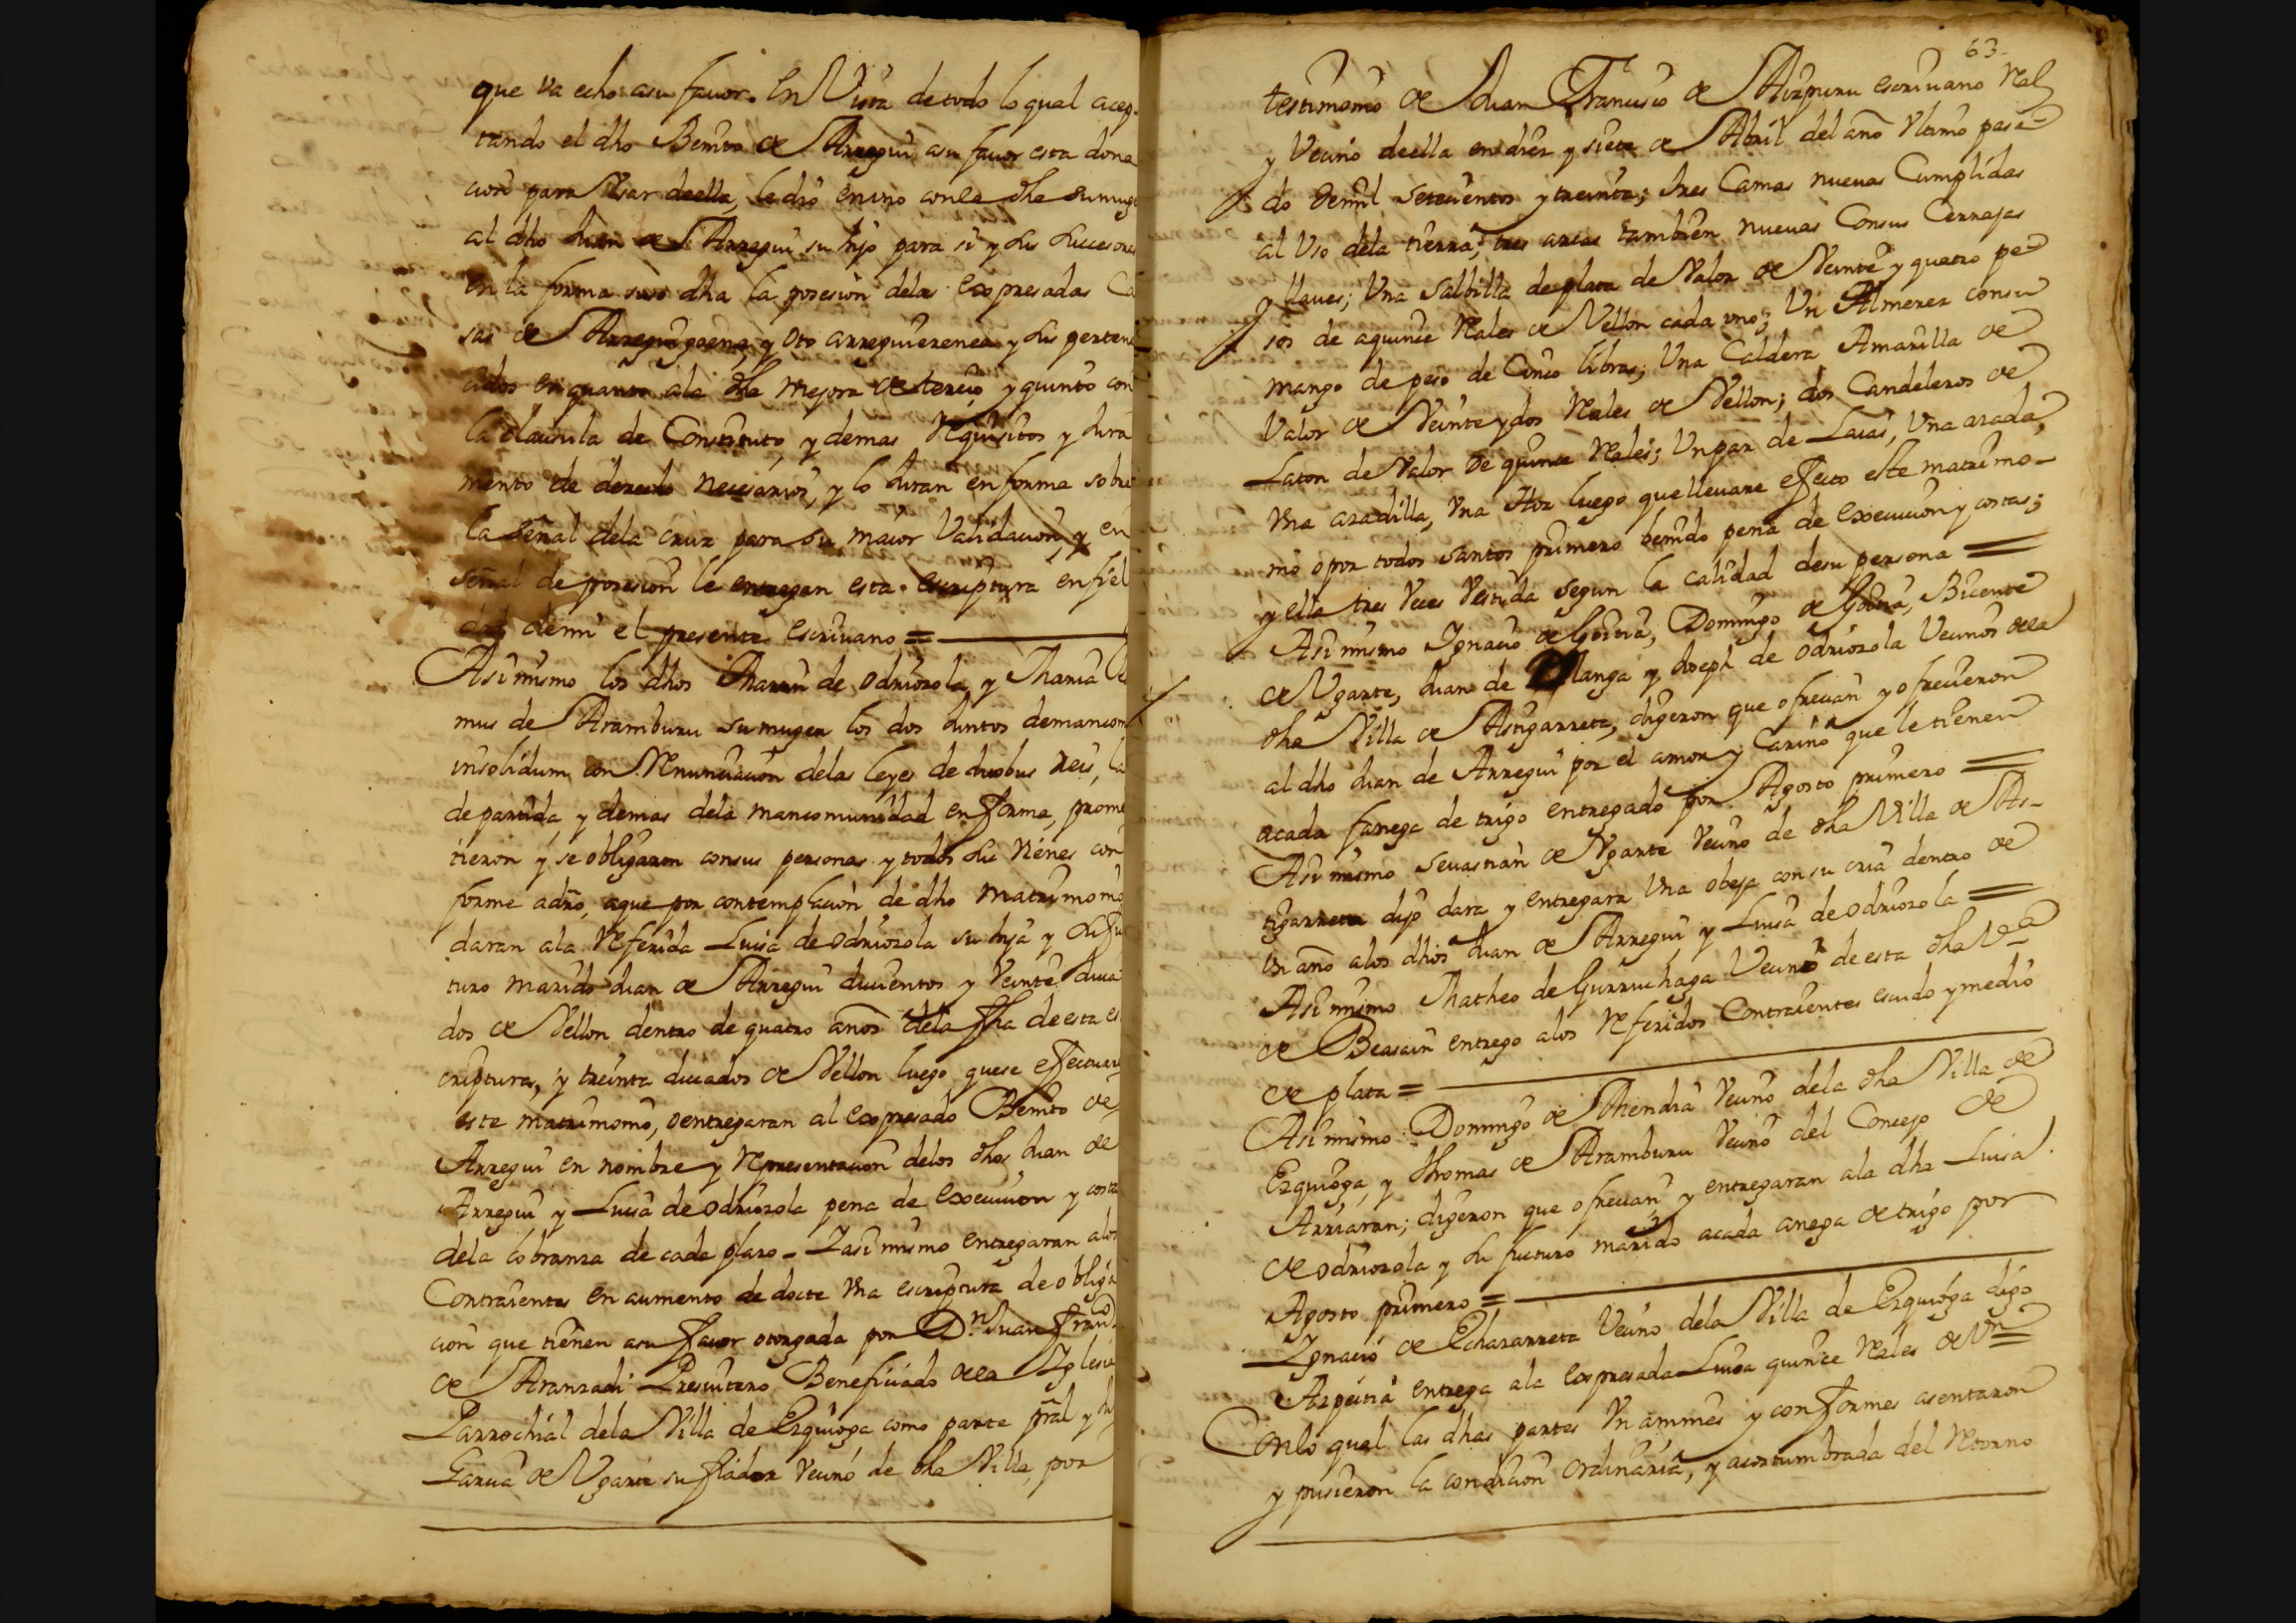 que va echo asu fauor. En Vista detodo lo qual acep-
tando el dho Benito de Arregui asu fauor esta dona
cion para Vsar deella, le dio en vno con la dha su muge
al dho Juan de Arregui su hijo para si y sus succesores
en la forma suso dha la posesion delas expresadas Ca
sas de Arreguigoena, y Oto arreguierenea y sus perten
cidos en quanto ala dha mejora de tercio y quinto con
la clausula de Constituto, y demas Requisitos y Jura
mento de derecho necesarios, y lo Juran en forma sobre
la señal dela cruz para su maior Validacion, y en
señal de posesion le entregan esta escriptura en fiel
dad demi el presente escriuano =
Asi mismo los dhos Martin de Odriozola, y Maria
mus de Aramburu su muger los dos Juntos demancom
insolidum con Renunciacion delas leyes de duobus Reis, la
de partida, y demas dela mancomunidad en forma, prome
tieron y se obligaron consus personas y todos sus vienes con
forme adro, aque por contemplacion de dho matrimonio
daran ala Referida Luisa de Odriozola su hija y su fu
turo marido Juan de Arregui ducientos y Veinte duca
dos de Vellon dentro de quatro años dela fha de esta es
criptura, y treinta ducados de Vellon luego quese efectuare
este matrimonio, o entregaran al expresado Benito de
Arregui en nombre y Representacion delos dhos Juan de
Arregui y Luisa de Odriozola pena de execucion y costa
dela cobranza de cada plazo - Y asi mismo entregaran alos
Contraientes en aumento de docte vna escriptura de obliga
cion que tienen asu fauor otorgada por Dn Juan Franco
de Aranzadi Presuitero Beneficiado dela Yglesia
Parrochial dela Villa de Ezquioga como parte pral y
Garcia de Vgarte su fiador vecino de dha Villa, por
63
testimonio de Juan Francisco de Aizpuru escriuano Real
y Vecino deella en diez y siete de Abril del año Vltimo pasa
do demil setecientos y treinta; tres Camas nueuas Cumplidas
al Vso dela tierra; tres arcas tambien nueuas Consus Cerrajas
y llaues; Vna Salbilla de plata de Valor de Veinte y quatro pe
sos de aquince Reales de Vellon cada vno; Vn Almerez consu
mango de peso de Cinco libras; Vna Caldera Amarilla de
Valor de Veinte y dos Reales de Vellon; dos Candeleros de
Laton de Valor de quince Reales; Vn par de Laias, Vna azada,
vna azadilla, vna Hoz luego que lleuare efecto este matrimo-
nio o por todos santos primero benido pena de execucion y costas;
y ella tres Veces Vestida segun la calidad desu persona =
Asi mismo Ignacio de Goitia, Domingo de Goitia, Bicente
de Vgarte, Juan de Olanga y Joseph de Odriozola Vecinos dela
dha Villa de Astigarreta, digeron que ofrecian y ofrecieron
al dho Juan de Arregui por el amor y Cariño que le tienen
acada fanega de trigo entregado por Agosto primero =
Asi mismo Seuastian de Vgarte Vecino de dha Villa de As-
tigarreta dijo dara y entregara Vna obeja con su cria dentro de
vn año alos dhos Juan de Arregui y Luisa de Odriozola =
Asi mismo Matheo de Gurruchaga Vecino de esta dha Va
de Beasain entrego alos Referidos Contraientes escudo y medio
de plata =
Asi mismo Domingo de Mendia Vecino dela dha Villa de
Ezquioga, y Thomas de Aramburu Vecino del Concejo de
Arriaran; digeron que ofrecian, y entregaran ala dha Luisa
de Odriozola y su futuro marido acada anega de trigo por
Agosto primero =
Ignacio de Echazarreta Vecino dela Villa de Ezquioga digo
Azpeitia entrega ala expresada Luisa quince Reales de Vn =
Conlo qual las dhas partes Vnanimes y conformes asentaron
y pusieron la condicion ordinaria, y acostumbrada del Retorno